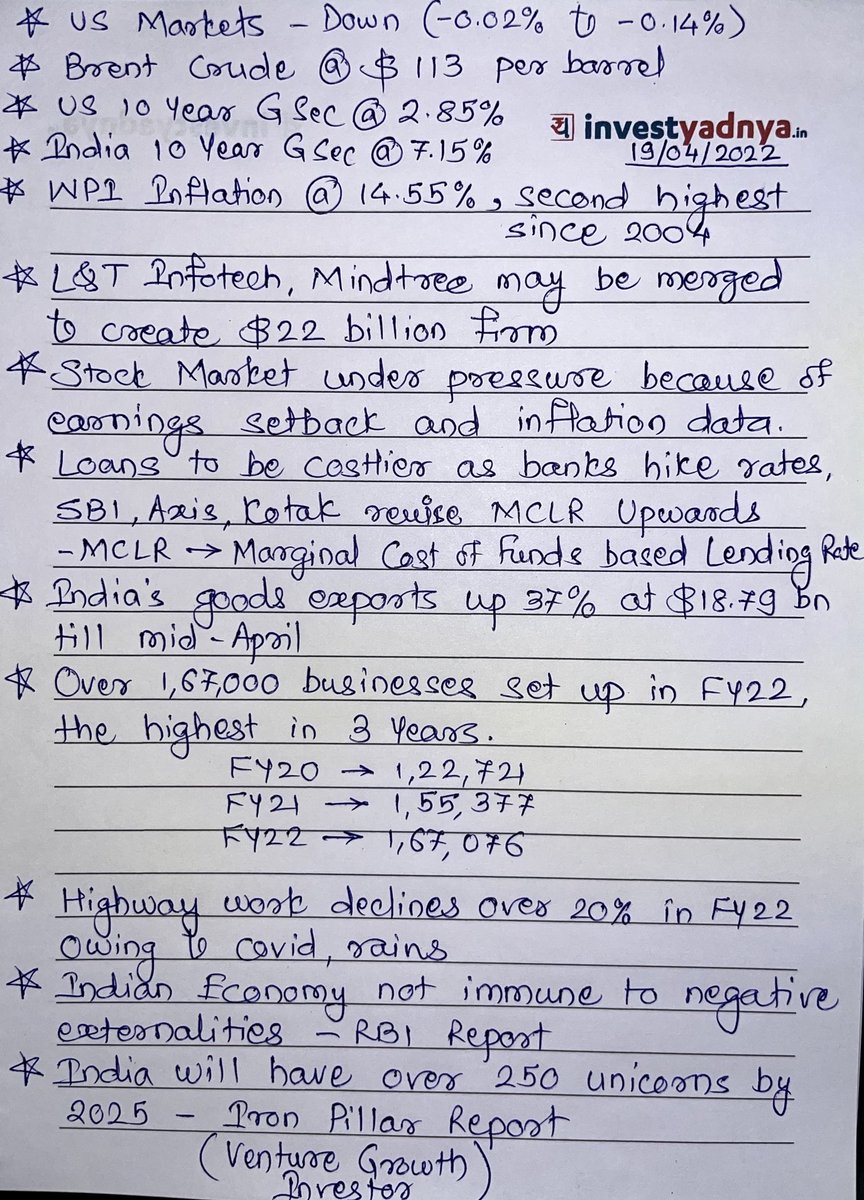 ☆ US Markets - Down (-0.02% to -0.14%)
☆ Brent Crude @ $ 113 per barrel
☆ US 10 Year G Sec @ 2.85%
य investyadnya.in
☆ India 10 Year G Sec @ 7.15%
19/04/2022
☆ WPI Inflation @ 14.55%, second highest
since 2004
☆ L&T Infotech, Mindtree may be merged
to create $22 billion firm
☆ Stock Market under pressure because of
earnings setback and inflation data.
☆ Loans to be costlier as banks hike rates,
SBI, Axis, Kotak revise MCLR Upwards
- MCLR → Marginal Cost of Funds based Lending Rate
☆ India's goods exports up 37% at $18.79 bn
till mid-April
☆ Over 1,67,000 businesses set up in FY22,
the highest in 3 Years.
FY20 → 1,22,721
FY21 → 1,55,377
FY22 → 1,67,076
☆ Highway work declines over 20% in FY22
owing to covid, rains
☆ Indian Economy not immune to negative
externalities - RBI Report
☆ India will have over 250 unicorns by
2025 - Iron Pillar Report
(Venture Growth)
Investor